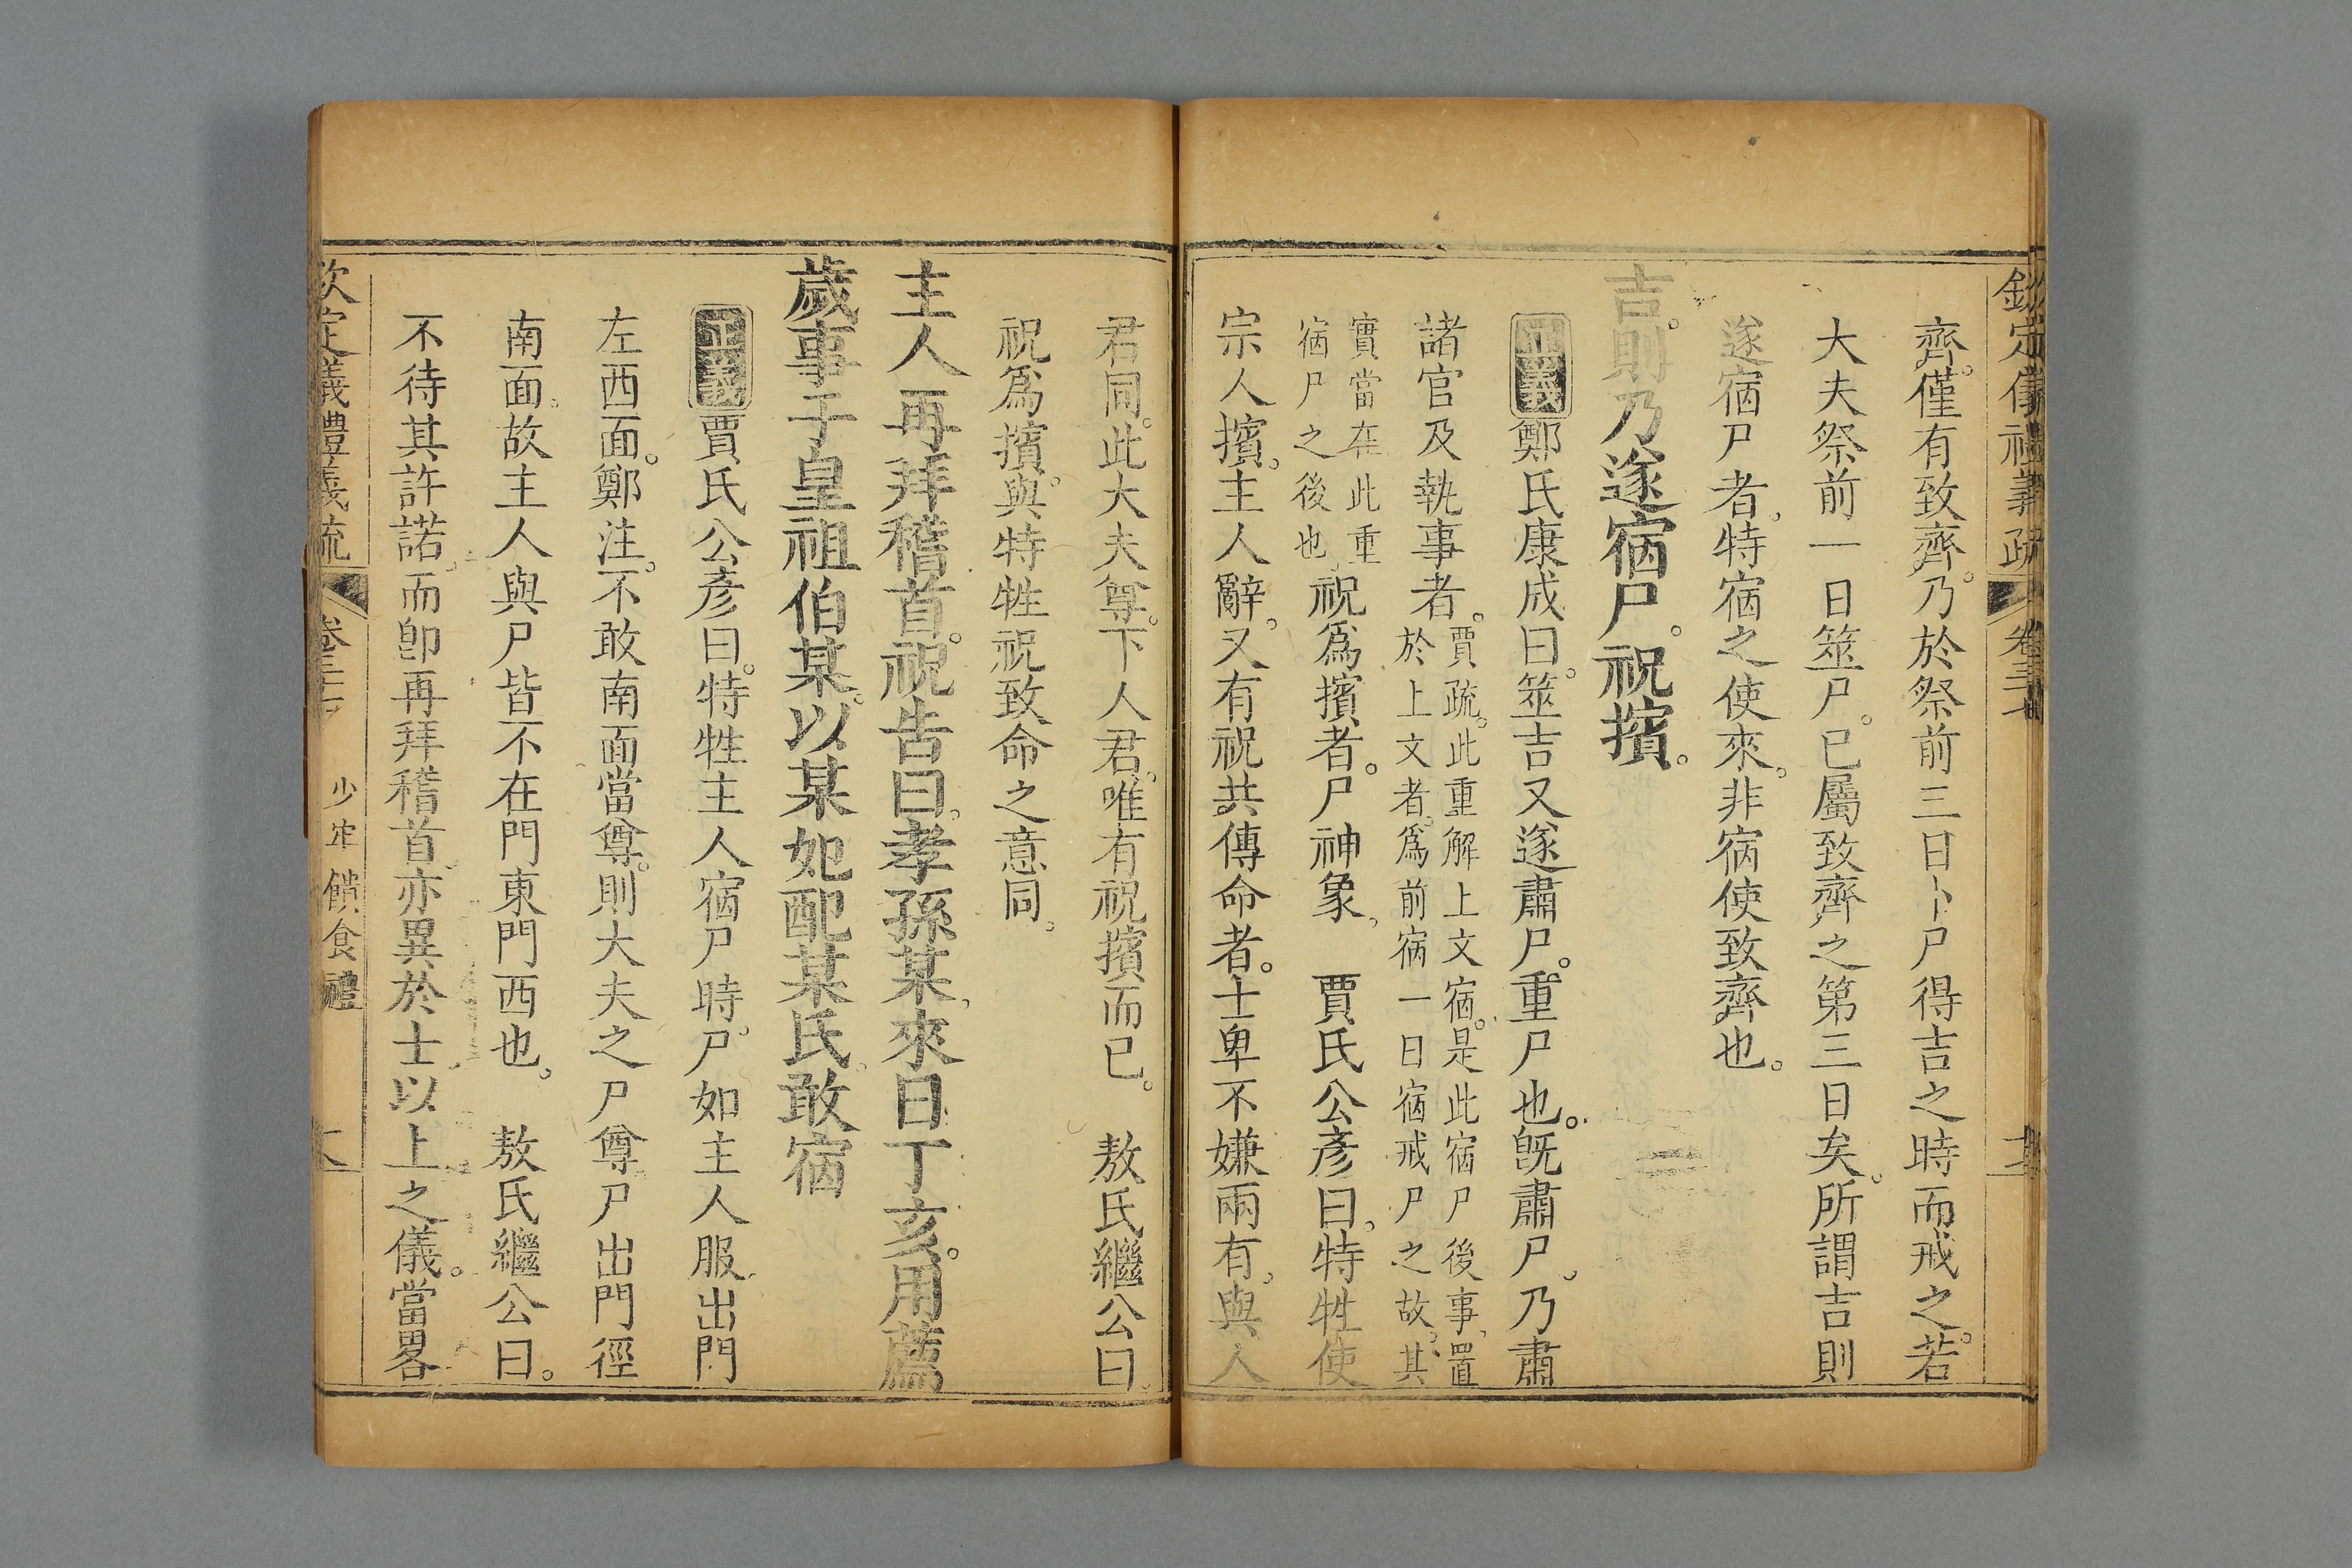 欽定儀禮義疏 卷三十七
齊。僅有致齊。乃於祭前三日卜尸得吉之時而戒之。若
大夫祭前一日筮尸。已屬致齊之第三日矣。所謂吉則
遂宿尸者。特宿之使來。非宿使致齊也。
吉。則乃遂宿尸。祝擯。
正義鄭氏康成曰。筮吉又遂肅尸。重尸也。旣肅尸。乃肅
諸官及執事者。賈疏。此重解上文宿。是此宿尸後事。置
於上文者。爲前宿一日宿戒尸之故。其
實當在此重
宿尸之後也。祝爲擯者。尸神象。 賈氏公彥曰。特牲使
宗人擯。主人辭。又有祝共傳命者。士卑不嫌兩有。與人
君同。此大夫尊。下人君。唯有祝擯而已。 敖氏繼公曰。
祝爲擯。與特牲祝致命之意同。
主人再拜稽首。祝告曰。孝孫某。來日丁亥。用薦
歲事于皇祖伯某。以某妃配某氏。敢宿
正義賈氏公彥曰。特牲主人宿尸時。尸如主人服。出門
左西面。鄭注。不敢南面當尊。則大夫之尸尊。尸出門徑
南面。故主人與尸皆不在門東門西也。 敖氏繼公曰。
不待其許諾。而卽再拜稽首。亦異於士。以上之儀。當畧
欽定儀禮義疏 卷三十七 少牢饋食禮